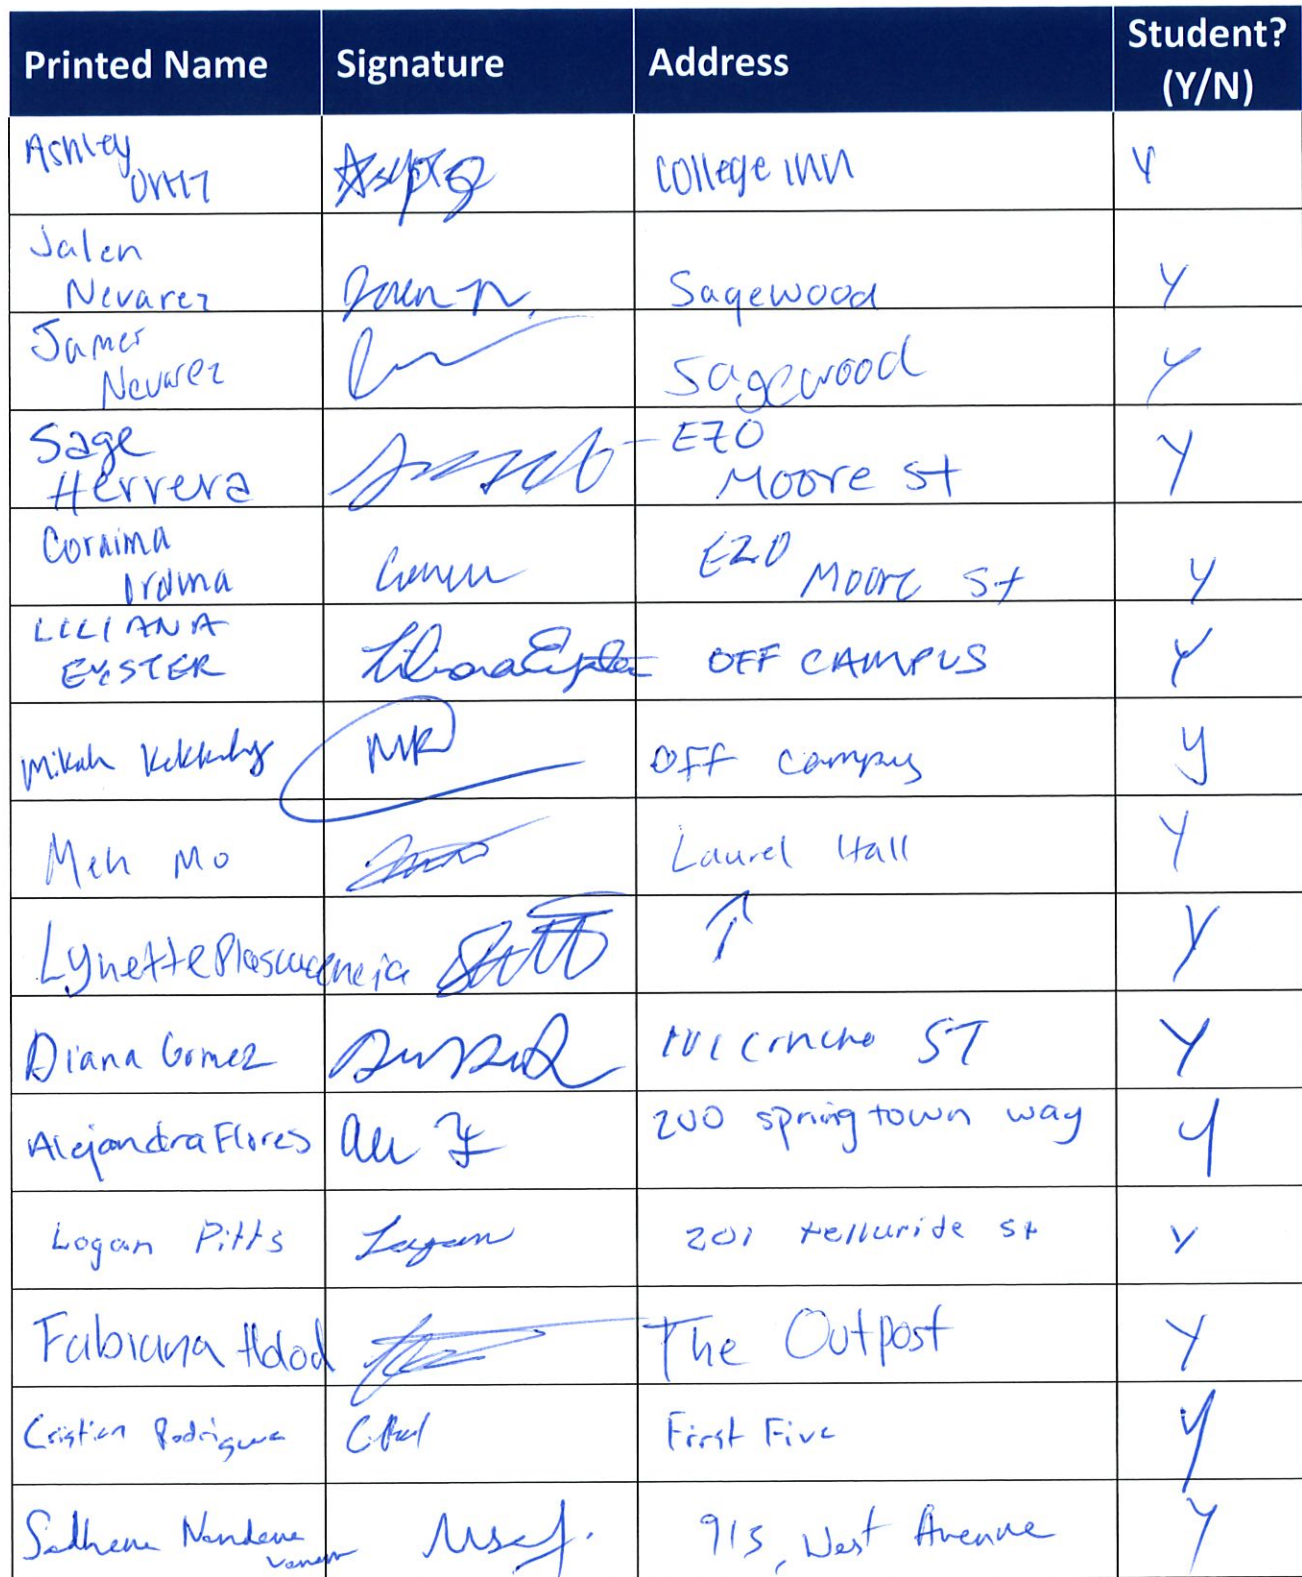 Printed Name Signature Address Student? (Y/N)
Ashley
Ortiz College inn Y
Jalen
Nevarez Jalen N. Sagewood Y
James
Nevarez Sagewood Y
Sage
Herrera E70
Moore St Y
Coraima
E20
Moore St Y
LILIANA
EYSTER Liliana Eyster OFF CAMPUS Y
Mikah MK OFF campus Y
Meh Mo Laurel Hall Y
Lynette ↑ Y
Diana Gomez ST Y
Alejandra Flores 200 springtown way Y
Logan Pitts Logan 201 telluride st Y
Fabiana The Outpost Y
Cristian First Five Y
915, West Avenue Y